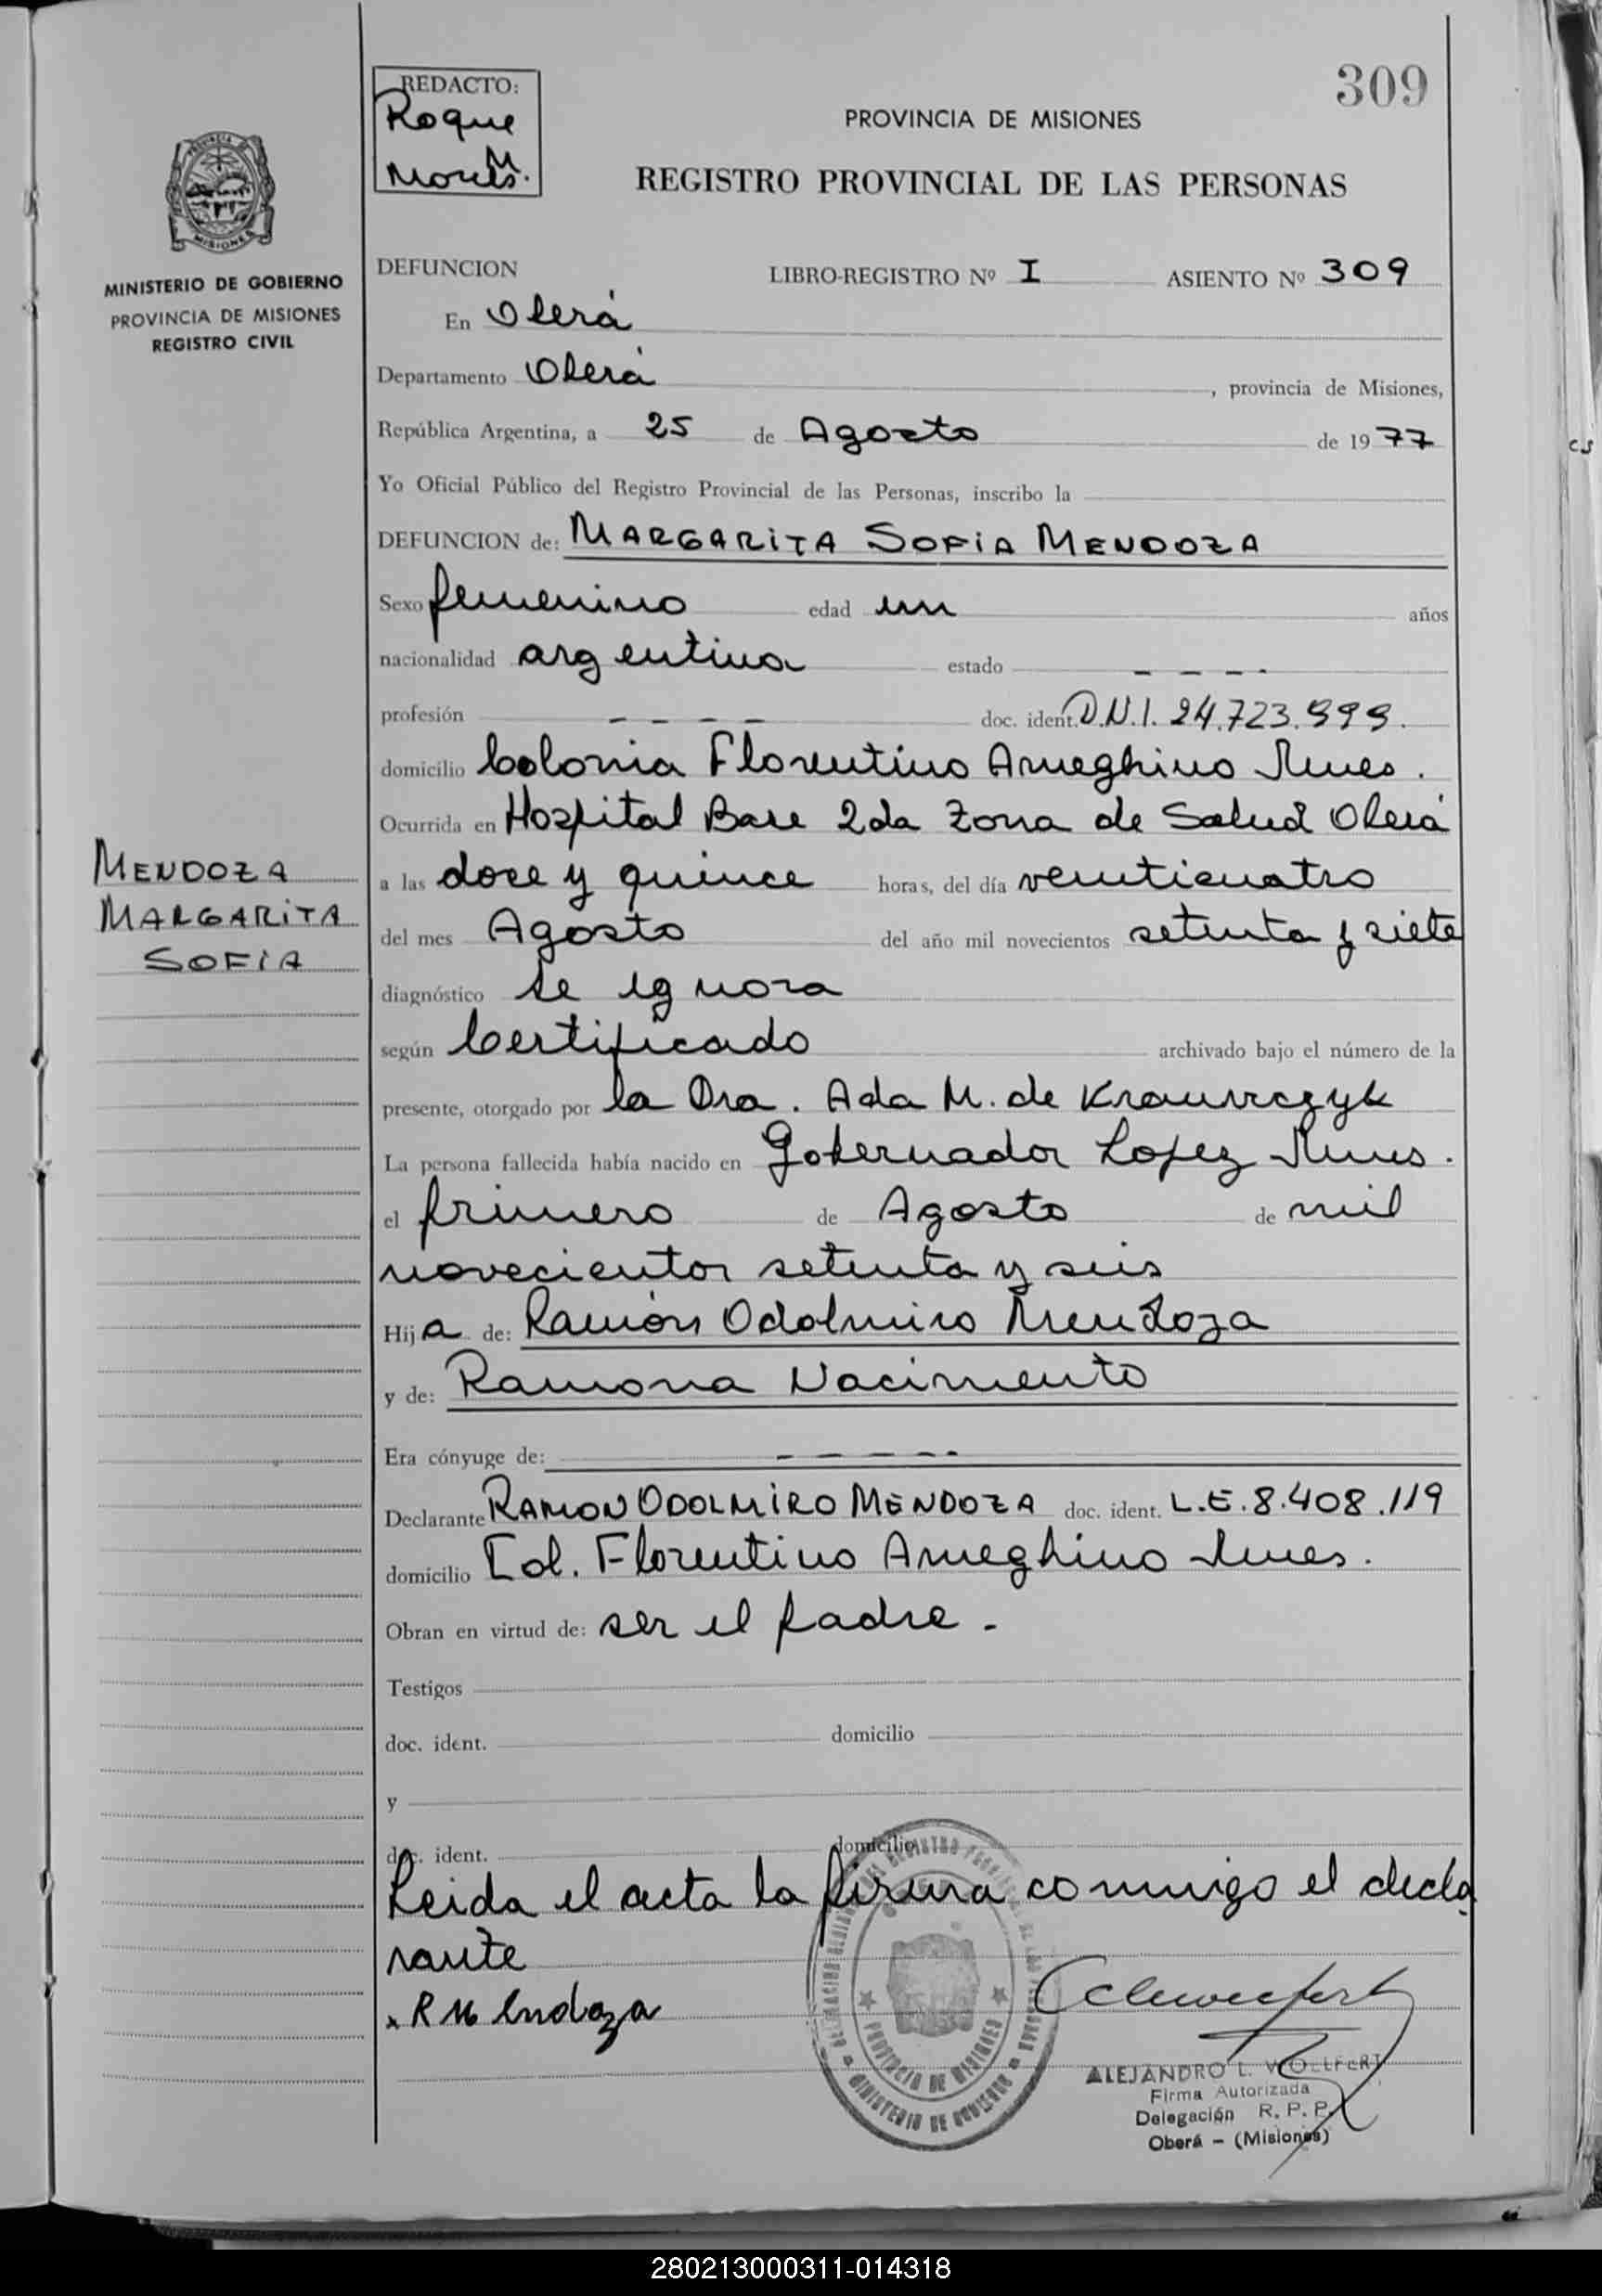 309
REDACTO:
Roque
M.
PROVINCIA DE MISIONES
REGISTRO PROVINCIAL DE LAS PERSONAS
PROVINCIA DE
MISIONES
MINISTERIO DE GOBIERNO
PROVINCIA DE MISIONES
REGISTRO CIVIL
DEFUNCION LIBRO-REGISTRO Nº I ASIENTO Nº 309
En Oberá
Departamento Oberá, provincia de Misiones,
República Argentina, a 25 de Agosto de 1977
Yo Oficial Público del Registro Provincial de las Personas, inscribo la
DEFUNCION de: MARGARITA SOFIA MENDOZA
Sexo femenino edad un años
nacionalidad argentina estado - - - -
profesión - - - - doc. ident. D.N.I. 24.723.999.
domicilio Colonia Florentino Ameghino Mnes.
Ocurrida en Hospital Base 2da Zona de Salud Oberá
a las doce y quince horas, del día veinticuatro
del mes Agosto del año mil novecientos setenta y siete
diagnóstico se ignora
según Certificado archivado bajo el número de la
presente, otorgado por la Dra. Ada M. de Krawczyk
La persona fallecida había nacido en Gobernador Lopez Mnes.
el primero de Agosto de mil
novecientos setenta y seis
Hija de: Ramón Odolmiro Mendoza
y de: Ramona Nacimento
Era cónyuge de: - - - - -
Declarante RAMON ODOLMIRO MENDOZA doc. ident. L.E. 8.408.119
domicilio Col. Florentino Ameghino Mnes.
Obran en virtud de: ser el padre.-
Testigos
doc. ident. domicilio
y
doc. ident. domicilio
Leida el acta la firma conmigo el decla
rante
x R Mendoza
MENDOZA
MARGARITA
SOFIA
PROVINCIA DE MISIONES
MINISTERIO DE GOBIERNO
ALEJANDRO L. WOLLFERT
Firma Autorizada
Delegación R. P. P.
Oberá - (Misiones)
280213000311-014318